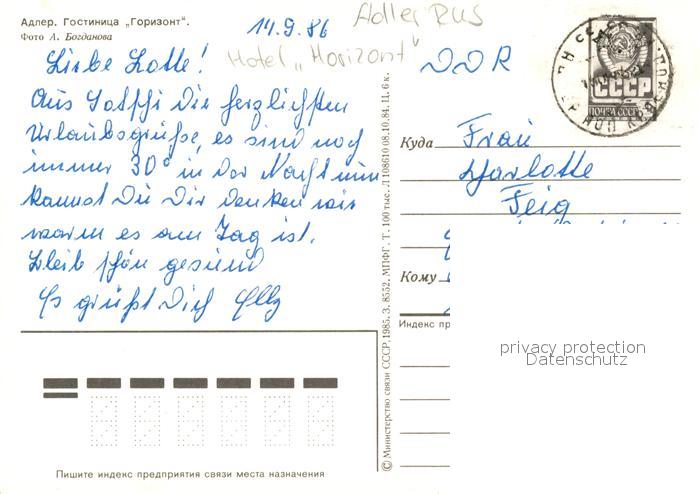 Адлер. Гостиница „Горизонт".
Фото А. Богданова
14.9.86
Adler RUS
Hotel „Horizont"
Liebe Lotte!
Aus Sotschi Die herzlichsten
Urlaubsgrüße, es sind noch
immer 30° in der Nacht nun
kannst Du Dir denken wie
warm es am Tag ist.
Bleib schön gesund
Es grüßt Dich Elly
DDR
СССР
ПОЧТА СССР
Куда Frau
Charlotte
Feig
Кому
Индекс пр
privacy protection
Datenschutz
© Министерство связи СССР, 1985. З. 8552. МПФГ. Т. 100 тыс. Л 108610 08.10.84. Ц. 6 к.
Пишите индекс предприятия связи места назначения